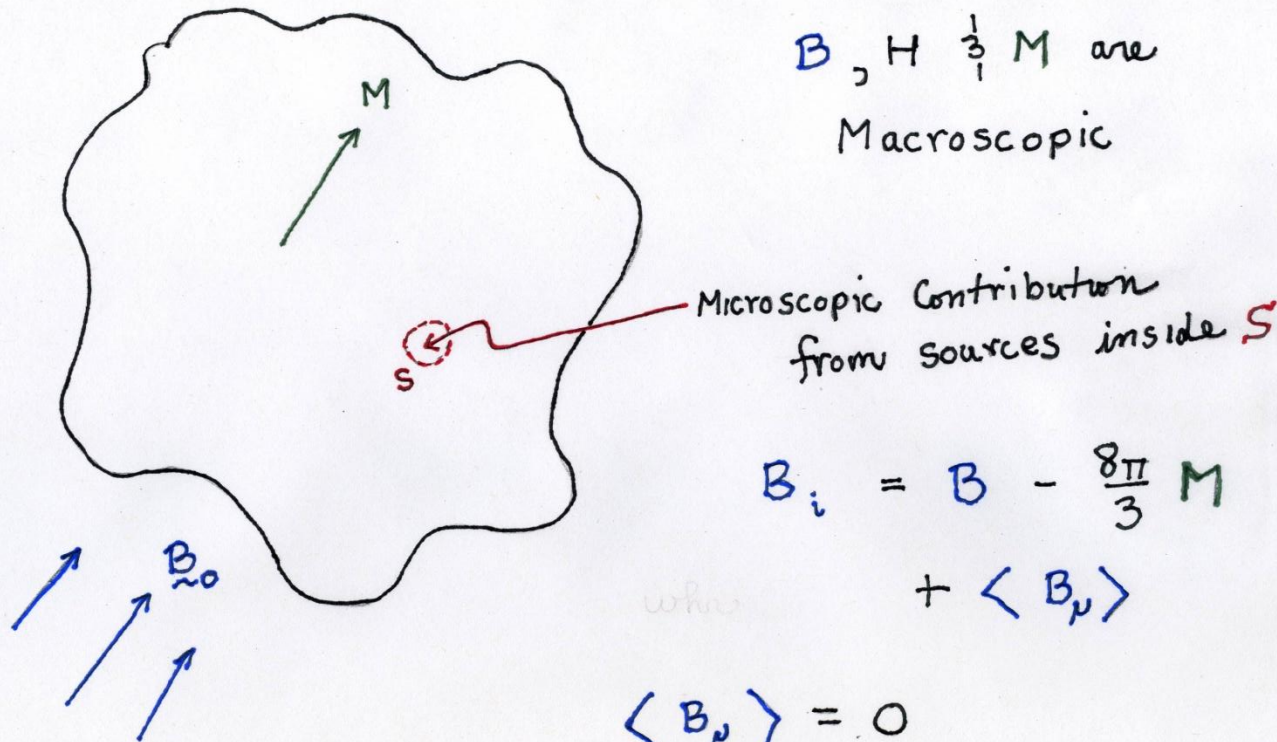 B, H & M are
Macroscopic
M
Microscopic Contribution
from sources inside S
S
B_i = B - 8π/3 M
+ ⟨ B_μ ⟩
B_0
⟨ B_μ ⟩ = 0